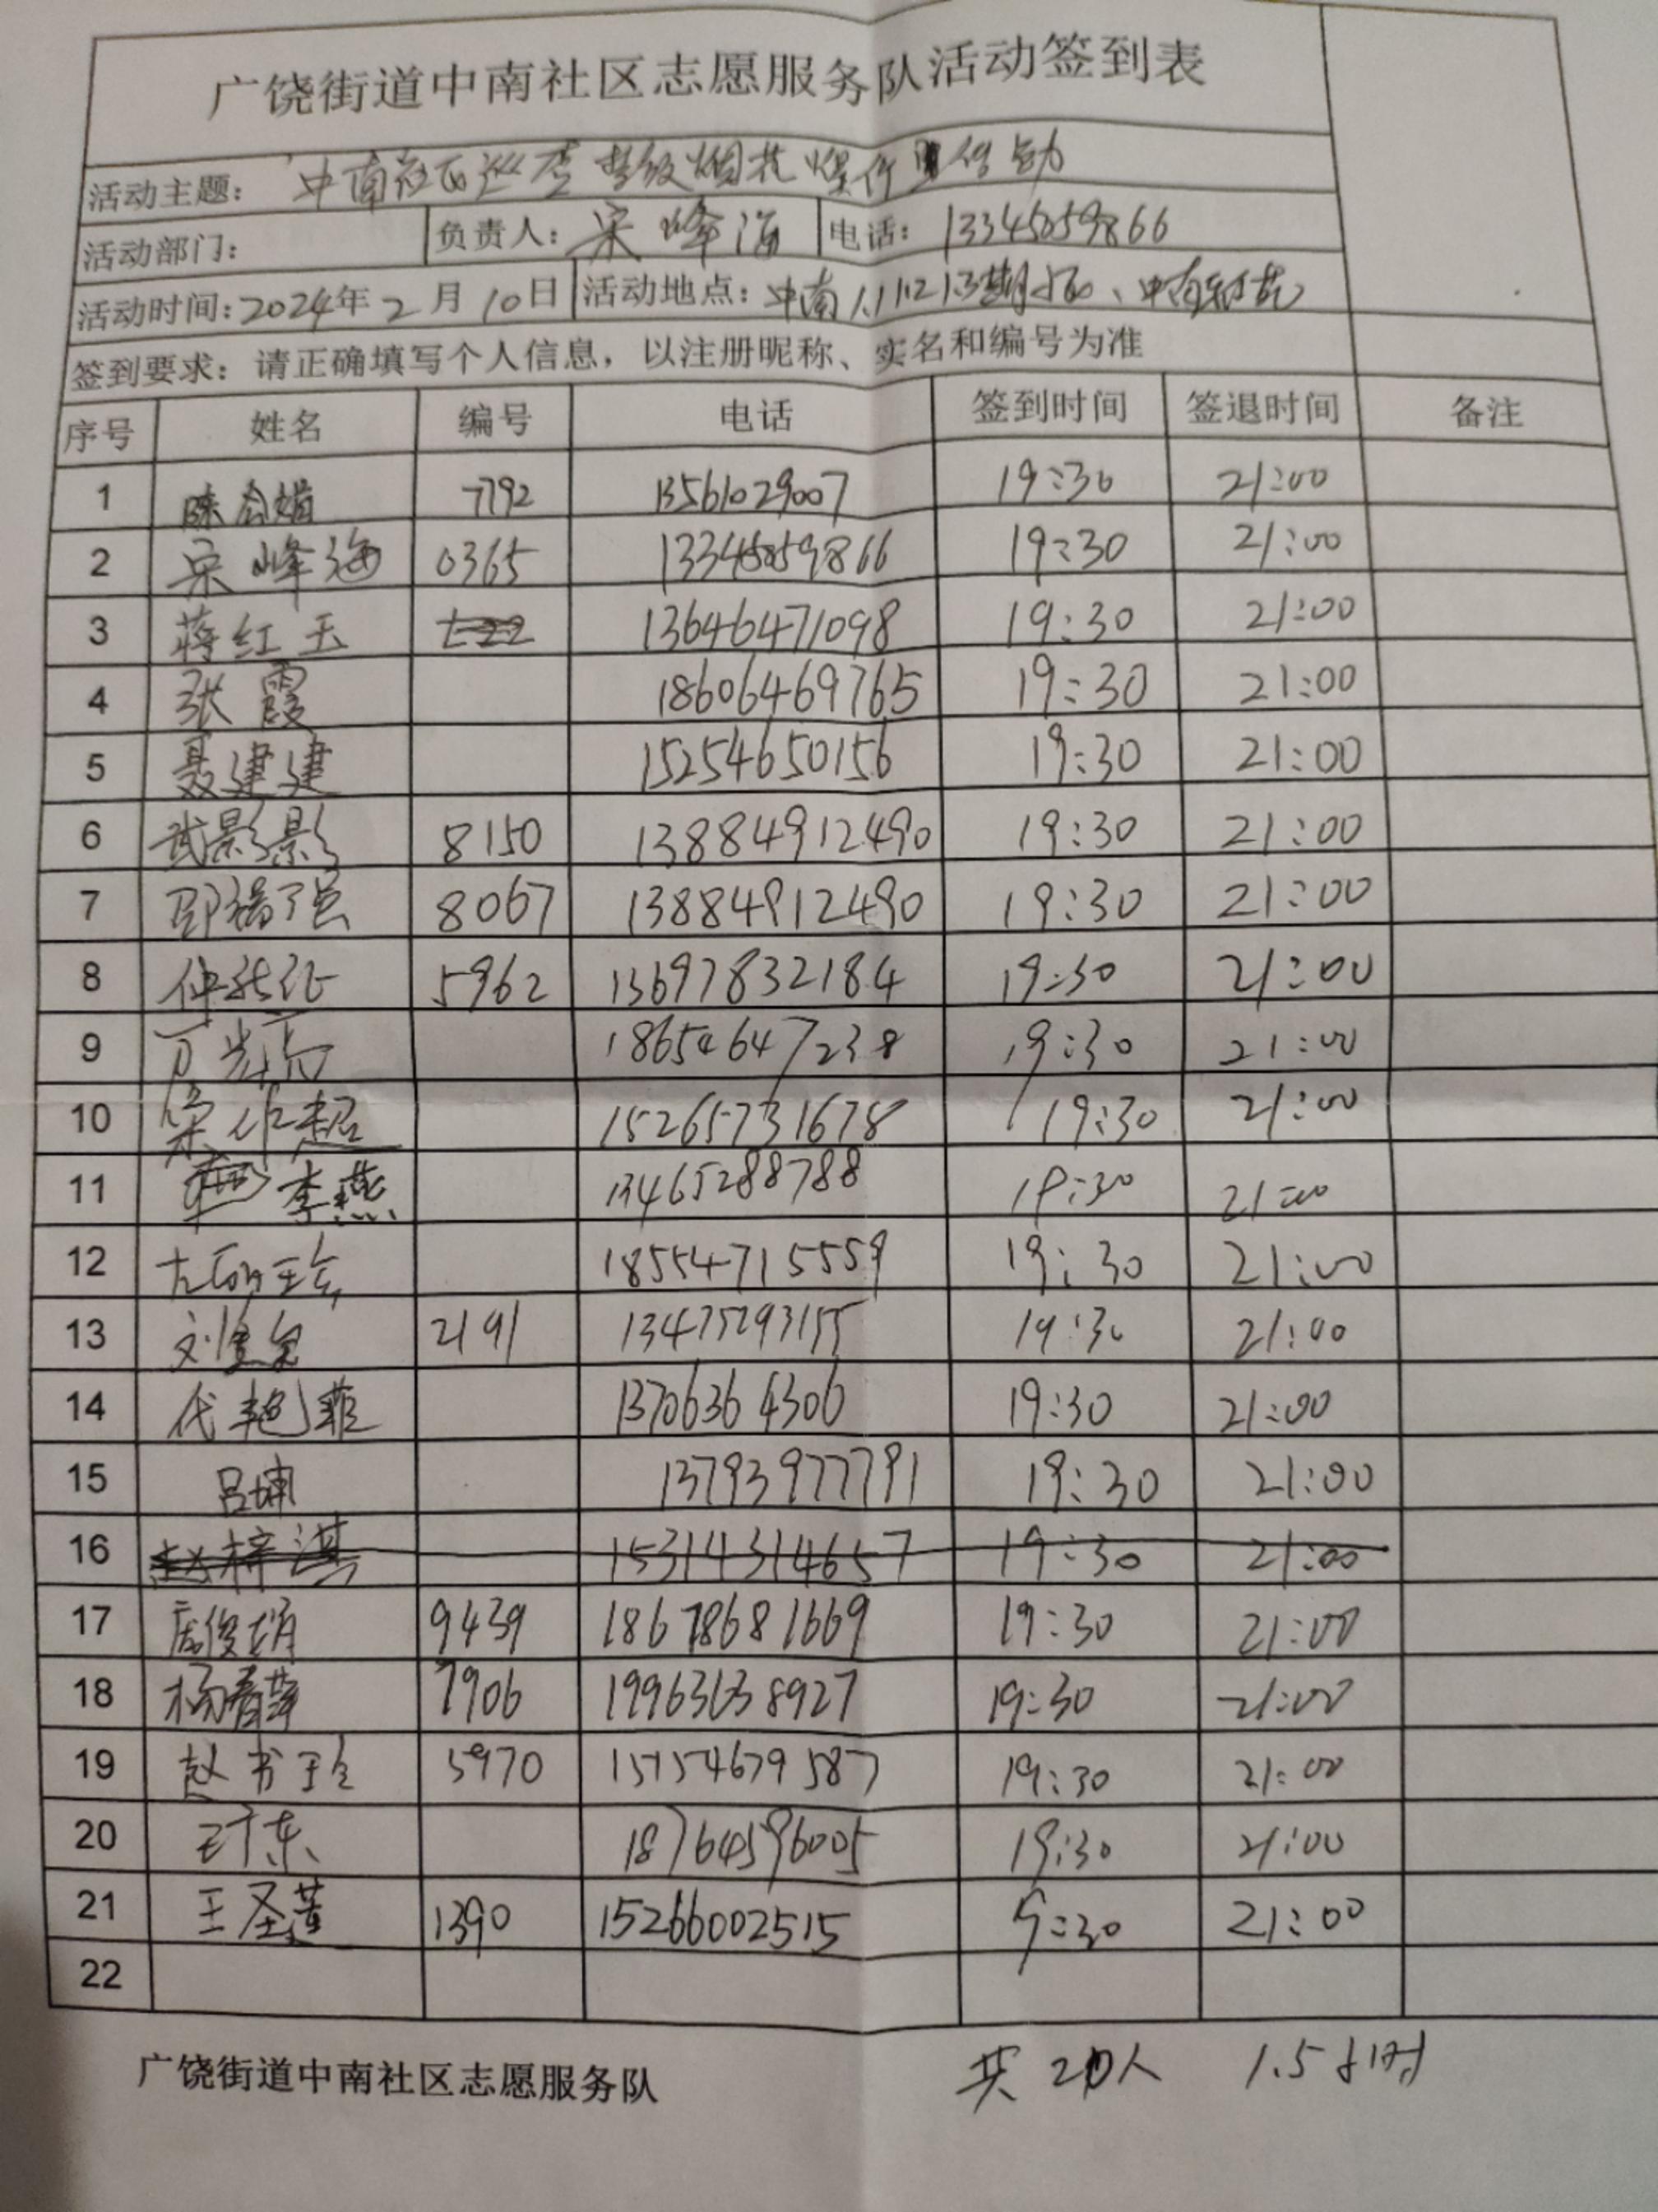 广饶街道中南社区志愿服务队活动签到表
活动主题: 中南社区巡查禁放烟花爆竹活动
活动部门: 负责人: 宋峰海 电话: 13345059866
活动时间: 2024年2月10日 活动地点: 中南
签到要求: 请正确填写个人信息，以注册昵称、实名和编号为准
序号 姓名 编号 电话 签到时间 签退时间 备注
1 陈会娟 7792 13561029007 19:30 21:00
2 宋峰海 0365 13345059866 19:30 21:00
3 蒋红玉 13646471098 19:30 21:00
4 张霞 18606469765 19:30 21:00
5 聂建建 15254650156 19:30 21:00
6 武影影 8150 13884912490 19:30 21:00
7 8067 13884912490 19:30 21:00
8 5962 13697832184 19:30 21:00
9 18654647238 19:30 21:00
10 15265731678 19:30 21:00
11 李燕 13465288788 19:30 21:00
12 18554715559 19:30 21:00
13 2191 13475293155 19:30 21:00
14 代艳菲 13706364306 19:30 21:00
15 吕坤 13793977791 19:30 21:00
16 赵梓淇 15314314657 19:30 21:00
17 9439 18678681669 19:30 21:00
18 杨春萍 7906 19963638927 19:30 21:00
19 赵书珍 5970 15154679587 19:30 21:00
20 18764596005 19:30 21:00
21 王圣董 1390 15266002515 9:30 21:00
22
广饶街道中南社区志愿服务队 共20人 1.5小时